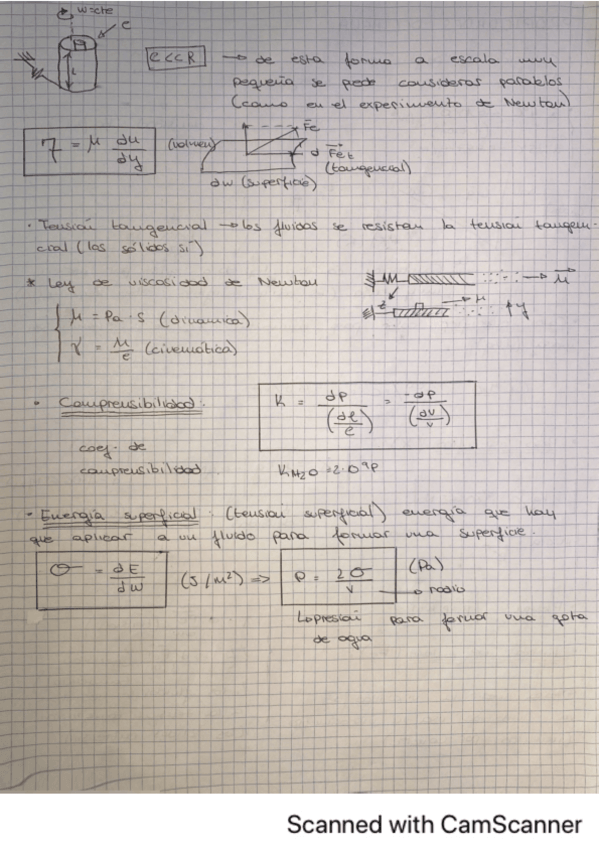 w=cte
e
L
e<<R → de esta forma a escala muy
pequeña se puede considerar parablos
(como en el experimento de Newton)
τ = μ du/dy
(volumen)
Fe
d Fet
(tangencial)
dw (superficie)
· Tensión tangencial → los fluidos se resisten la tensión tangen-
cial (los sólidos sí)
* Ley de viscosidad de Newton
μ = Pa·s (dinamica)
γ = μ/e (cinemática)
μ
z
μ
y
· Comprensibilidad:
K = dP/(dρ/ρ) = -dP/(dv/v)
coef. de
comprensibilidad
· Energía superficial: (tensión superficial) energía que hay
que aplicar a un fluido para formar una superficie.
σ = dE/dw (J/m²) => P = 2σ/r (Pa)
→ radio
↳ presión para formar una gota
de agua
Scanned with CamScanner